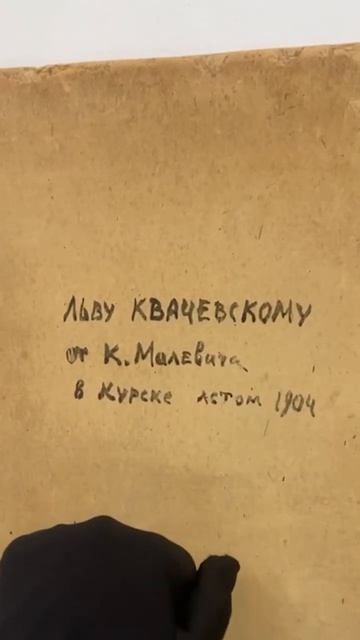 Льву КВАЧЕВСКОМУ
от К. Малевича
в Курске летом 1904